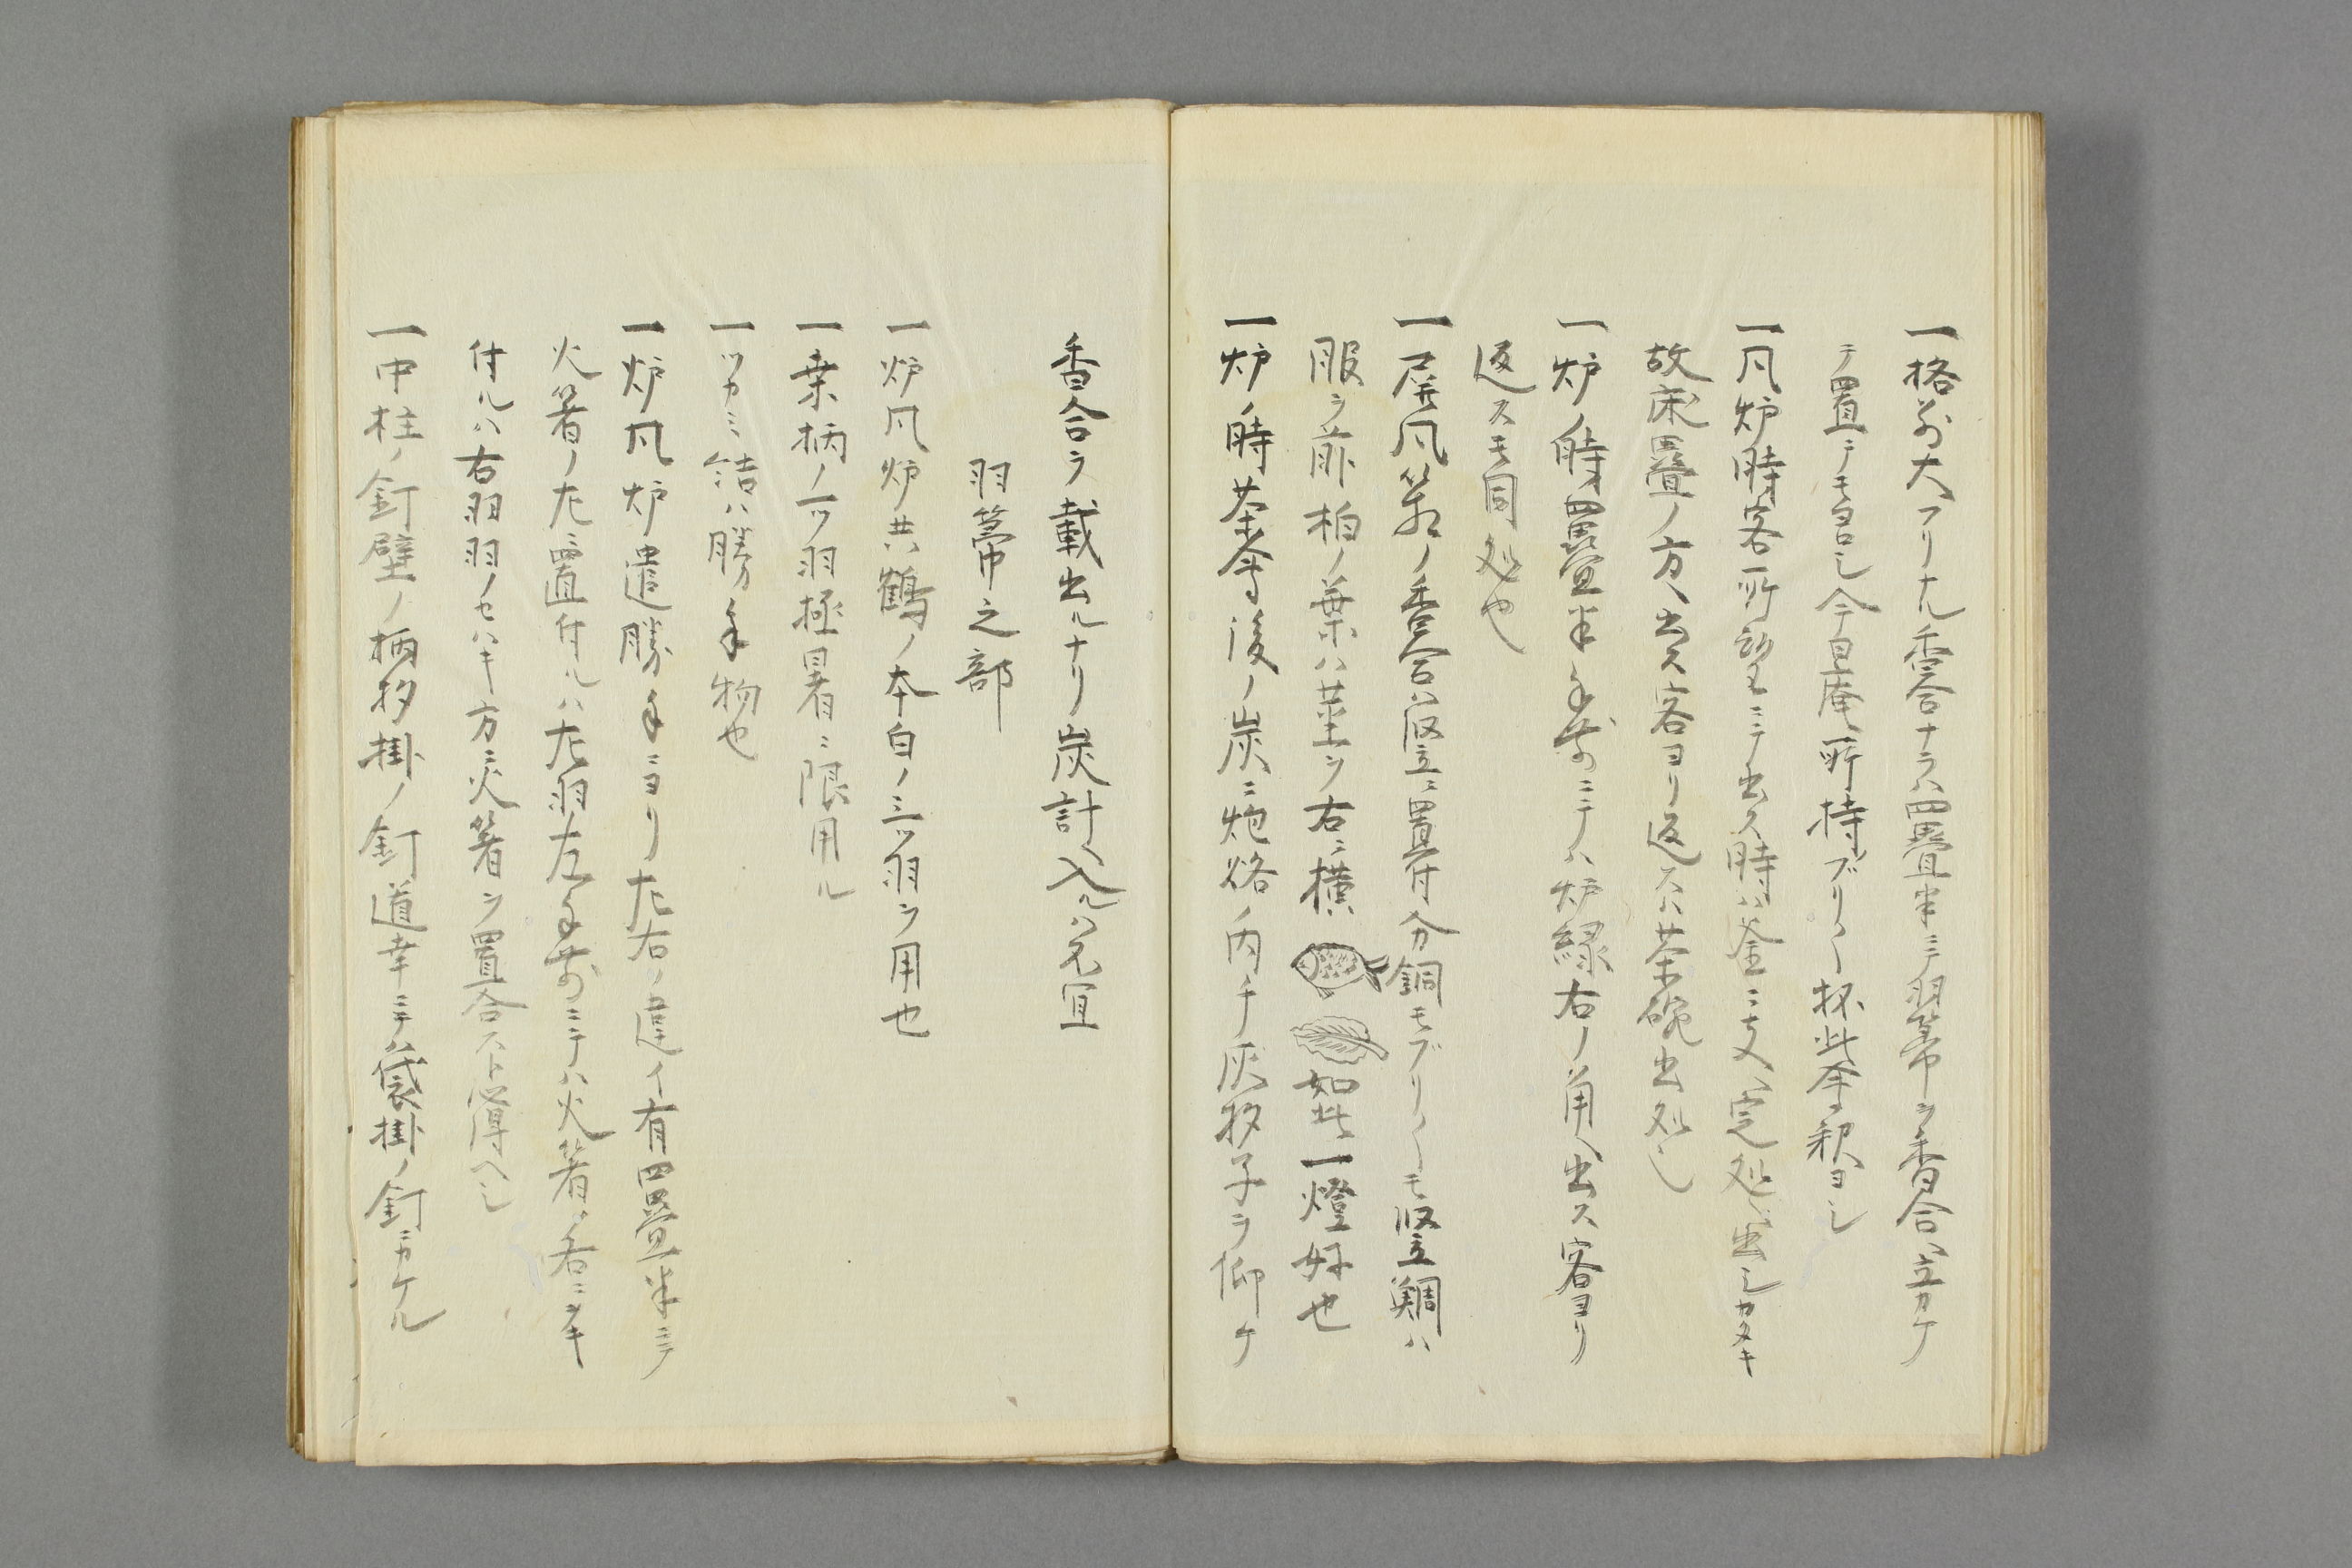 一格別大フリナル香合ナラハ四畳半ニテ羽箒ヲ香合ヘ立カケ
テ置テモヨロシ今日庵所持ブリ〱杯此本釈ヨシ
一風炉時客所望ニテ出ス時ハ釜ニ支ヘ定処ヘ出シカタキ
故床畳ノ方ヘ出ス客ヨリ返スハ茶碗出処ヘ
一炉ノ時四畳半手前ニテハ炉縁右ノ角ヘ出ス客ヨリ
返スモ同処也
一屏風箱ノ香合ハ竪ニ置付分銅モブリ〱モ竪鯛ハ
腹ヲ前柏ノ葉ハ茎ヲ右ニ横 如此一燈好也
一炉ノ時茶事後ノ炭ニ炮烙ノ内チ灰杓子ヲ仰ケ
香合ヲ載出ルナリ炭計入ルハ不宜
羽箒之部
一炉風炉共鶴ノ本白ノ三ツ羽ヲ用也
一桑柄ノ一ツ羽極暑ニ限用ル
一ツカミ結ハ勝手物也
一炉風炉遣勝手ニヨリ左右ノ違イ有四畳半ニテ
火箸ノ左ニ置付ルハ左羽左手前ニテハ火箸ノ右ニオキ
付ルハ右羽羽ノセハキ方ニ火箸ヲ置合スト簿ヘシ
一中柱ノ釘壁ノ柄杓掛ノ釘道幸ニテハ袋掛ノ釘ニカケル